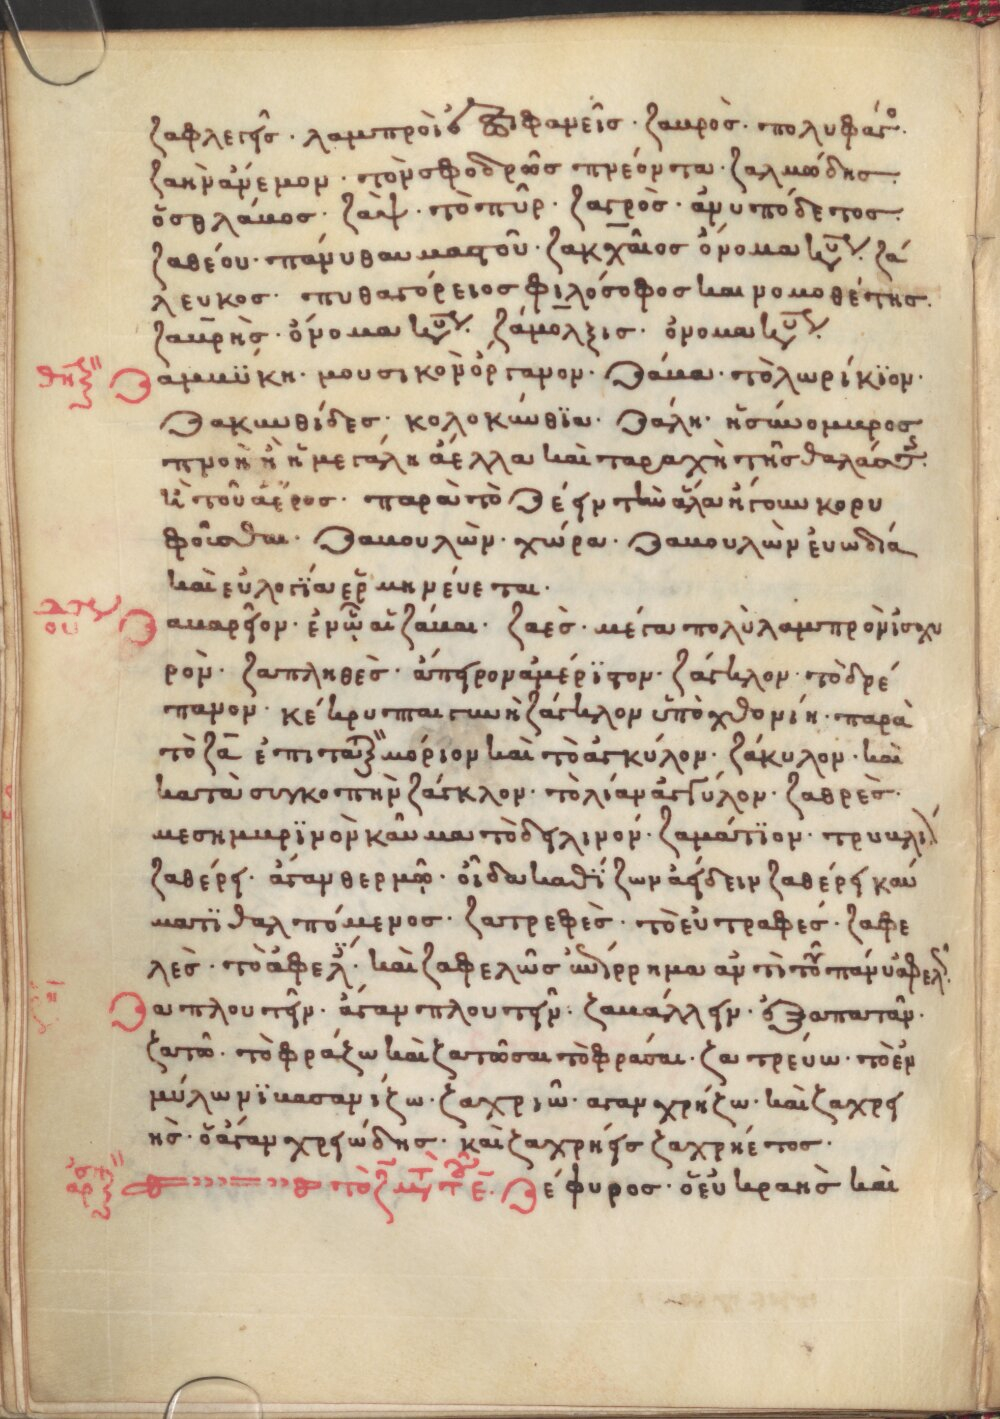 ζαφλεγεῖς · λαμπροὶ ἐπιφανεῖς · ζαυρὸς · πολυφάγος ·
ζαὴν ἄνεμον · τὸν σφοδρῶς πνέοντα · ζαλμώδης ·
ὁ θάλαμος · ζὰψ · τὸ πῦρ · ζαγρὸς · ἀνυπόδετος ·
ζαθέου · πάνυ θαυμαστοῦ · ζακχαῖος ὄνομα κύριον · ζά
λευκος · πυθαγόρειος φιλόσοφος καὶ νομοθέτης ·
ζαμρὴς · ὄνομα κύριον · ζάμολξις · ὄνομα κύριον ·
θηλ ζαμμύκη · μουσικὸν ὄργανον · ζάμα · τὸ λωρίκϊον ·
ζακυνθίδες · κολοκύνθϊα · ζάλη · ἡ σύνομβρος
πνοὴ ἢ ἡ μεγάλη ἄελλα καὶ ταραχὴ τῆς θαλάσσης
καὶ τοῦ ἀέρος · παρὰ τὸ ζέειν τὴν ἅλα ἤγουν κορυ
φοῦσθαι · ζαβουλὼν · χώρα · ζαβουλὼν εὐωδία
καὶ εὐλογία ἑρμηνεύεται ·
ουδ ζαμαρεῖον · ἐν ᾧ αἱ ζάμαι · ζαὲς · μέγα πολὺ λαμπρὸν ἰσχυ
ρὸν · ζαπληθὲς · ἄπειρον ἀμέρϊστον · ζάγκλον · τὸ δρέ
πανον · κέκρυπται γὰρ ἡ ζάγκλον ὑπὸ χθονίη · παρὰ
τὸ ζα ἐπιτατικὸν μόριον καὶ τὸ ἀγκύλον · ζάκυλον · καὶ
κατὰ συγκοπὴν ζάγκλον · τὸ λίαν ἀγκύλον · ζαθρὲς ·
μεσημβρϊνὸν καῦμα τὸ δειλινόν · ζαμάτϊον · τρυβλίον
ζαθέρει · ἄγαν θερμῷ · οἶδα καθΐζων ἀείδειν ζαθέρει καύ
ματϊ θαλπόμενος · ζατρεφὲς · τὸ εὐτραφές · ζαφε
λὲς · τὸ ἀφελές · καὶ ζαφελῶς ἐπίρρημα ἀντὶ τοῦ πάνυ ἀφελῶς
ζαπλουτεῖν · ἄγαν πλουτεῖν · ζαμάλλειν · ἐξαπατᾶν ·
ζατῶ · τὸ φράζω καὶ ζατῶσαι τὸ φράσαι · ζατρεύω · τὸ ἐν
μύλωνϊ βασανίζω · ζαχριῶ · ἄγαν χρῄζω · καὶ ζαχρει
ὴς · ὁ ἄγαν χρειώδης · καὶ ζαχρηεὶς ζαχρήεντος ·
ἀρσ τὸ ζ μετὰ τοῦ ε · ζέφυρος · ὁ εὐκραὴς καὶ